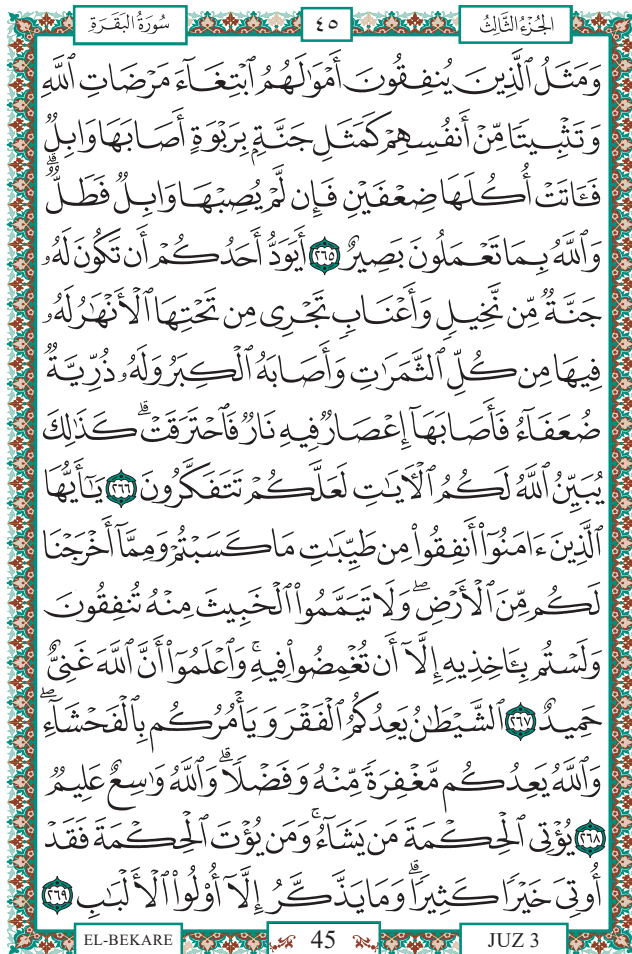 سُورَةُ الْبَقَرَةِ ٤٥ الجُزْءُ الثَّالِثُ
وَمَثَلُ ٱلَّذِينَ يُنفِقُونَ أَمْوَٰلَهُمُ ٱبْتِغَآءَ مَرْضَاتِ ٱللَّهِ
وَتَثْبِيتًا مِّنْ أَنفُسِهِمْ كَمَثَلِ جَنَّةٍۭ بِرَبْوَةٍ أَصَابَهَا وَابِلٌ
فَـَٔاتَتْ أُكُلَهَا ضِعْفَيْنِ فَإِن لَّمْ يُصِبْهَا وَابِلٌ فَطَلٌّ ۗ
وَٱللَّهُ بِمَا تَعْمَلُونَ بَصِيرٌ ٢٦٥ أَيَوَدُّ أَحَدُكُمْ أَن تَكُونَ لَهُۥ
جَنَّةٌ مِّن نَّخِيلٍ وَأَعْنَابٍ تَجْرِى مِن تَحْتِهَا ٱلْأَنْهَٰرُ لَهُۥ
فِيهَا مِن كُلِّ ٱلثَّمَرَٰتِ وَأَصَابَهُ ٱلْكِبَرُ وَلَهُۥ ذُرِّيَّةٌ
ضُعَفَآءُ فَأَصَابَهَآ إِعْصَارٌ فِيهِ نَارٌ فَٱحْتَرَقَتْ ۗ كَذَٰلِكَ
يُبَيِّنُ ٱللَّهُ لَكُمُ ٱلْـَٔايَٰتِ لَعَلَّكُمْ تَتَفَكَّرُونَ ٢٦٦ يَٰٓأَيُّهَا
ٱلَّذِينَ ءَامَنُوٓا۟ أَنفِقُوا۟ مِن طَيِّبَٰتِ مَا كَسَبْتُمْ وَمِمَّآ أَخْرَجْنَا
لَكُم مِّنَ ٱلْأَرْضِ ۖ وَلَا تَيَمَّمُوا۟ ٱلْخَبِيثَ مِنْهُ تُنفِقُونَ
وَلَسْتُم بِـَٔاخِذِيهِ إِلَّآ أَن تُغْمِضُوا۟ فِيهِ ۚ وَٱعْلَمُوٓا۟ أَنَّ ٱللَّهَ غَنِىٌّ
حَمِيدٌ ٢٦٧ ٱلشَّيْطَٰنُ يَعِدُكُمُ ٱلْفَقْرَ وَيَأْمُرُكُم بِٱلْفَحْشَآءِ ۖ
وَٱللَّهُ يَعِدُكُم مَّغْفِرَةً مِّنْهُ وَفَضْلًا ۗ وَٱللَّهُ وَٰسِعٌ عَلِيمٌ
٢٦٨ يُؤْتِى ٱلْحِكْمَةَ مَن يَشَآءُ ۚ وَمَن يُؤْتَ ٱلْحِكْمَةَ فَقَدْ
أُوتِىَ خَيْرًا كَثِيرًا ۗ وَمَا يَذَّكَّرُ إِلَّآ أُو۟لُوا۟ ٱلْأَلْبَٰبِ ٢٦٩
EL-BEKARE 45 JUZ 3